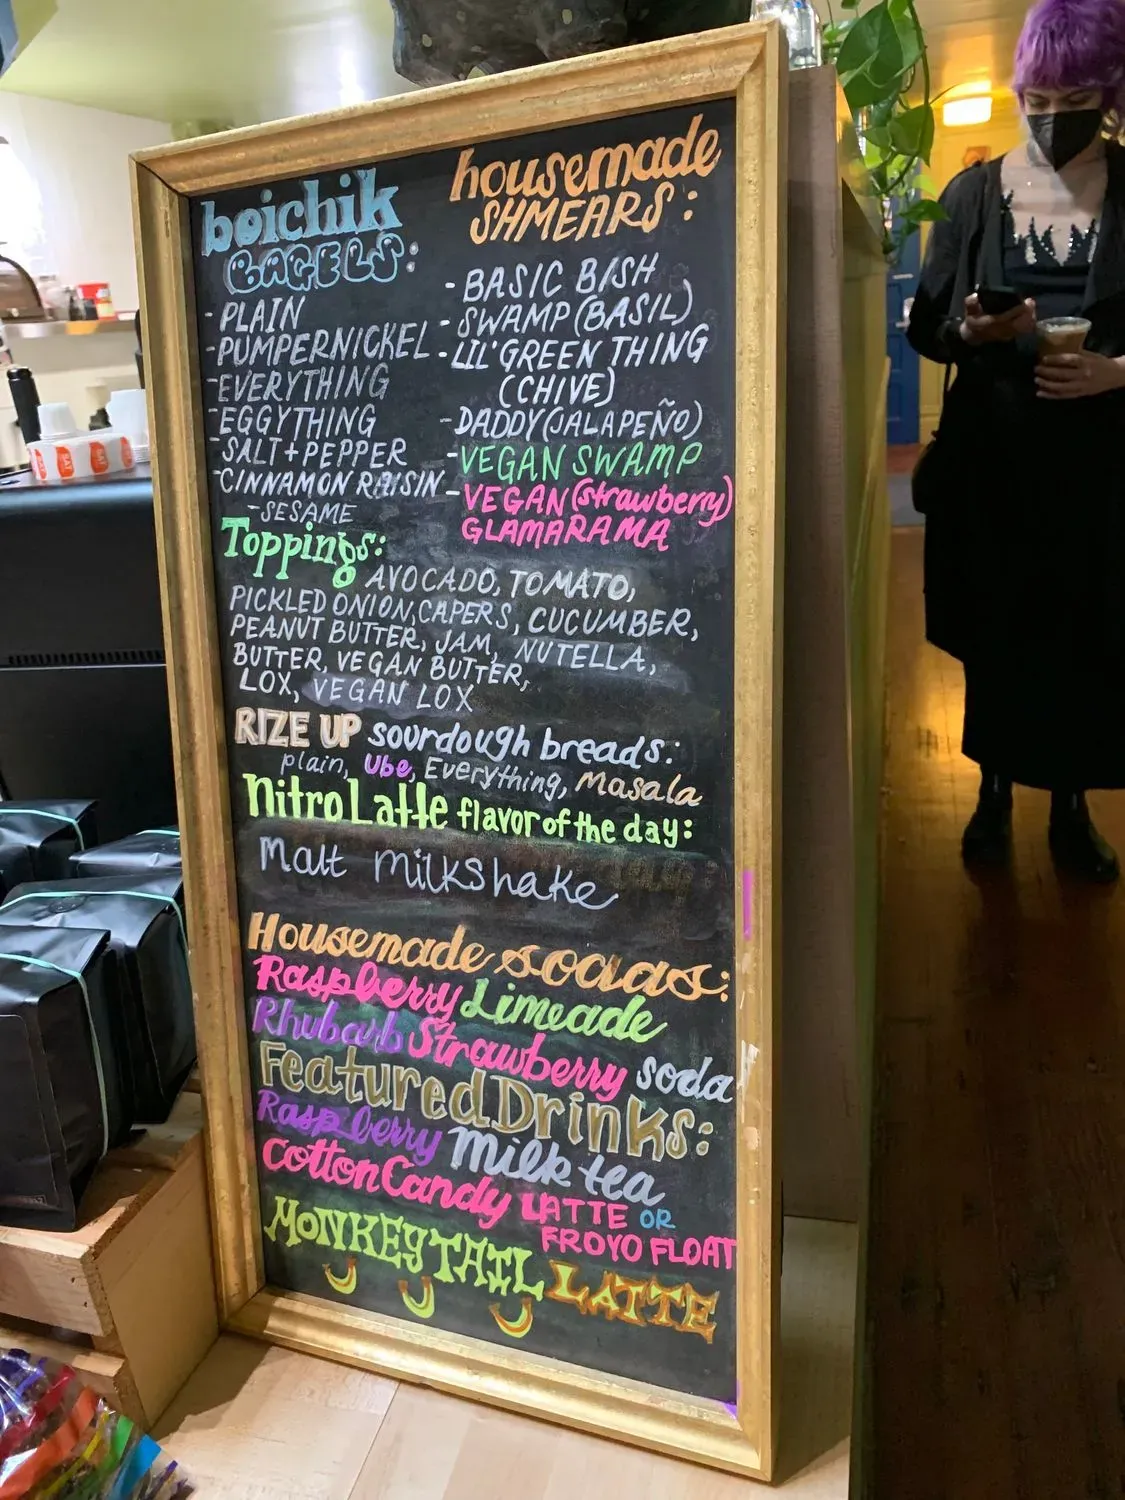 boichik
BAGELS:
- PLAIN
- PUMPERNICKEL
- EVERYTHING
- EGGYTHING
- SALT + PEPPER
- CINNAMON RAISIN
- SESAME
housemade
SHMEARS:
- BASIC BISH
- SWAMP (BASIL)
- LIL' GREEN THING
(CHIVE)
- DADDY (JALAPEÑO)
- VEGAN SWAMP
- VEGAN (strawberry)
GLAMARAMA
Toppings:
AVOCADO, TOMATO,
PICKLED ONION, CAPERS, CUCUMBER,
PEANUT BUTTER, JAM, NUTELLA,
BUTTER, VEGAN BUTTER,
LOX, VEGAN LOX
RIZE UP sourdough breads:
plain, Ube, Everything, Masala
Nitro Latte flavor of the day:
Malt Milkshake
Housemade sodas:
Raspberry Limeade
Rhubarb Strawberry soda
Featured Drinks:
Raspberry Milk tea
Cotton Candy LATTE OR
FROYO FLOAT
MONKEY TAIL LATTE